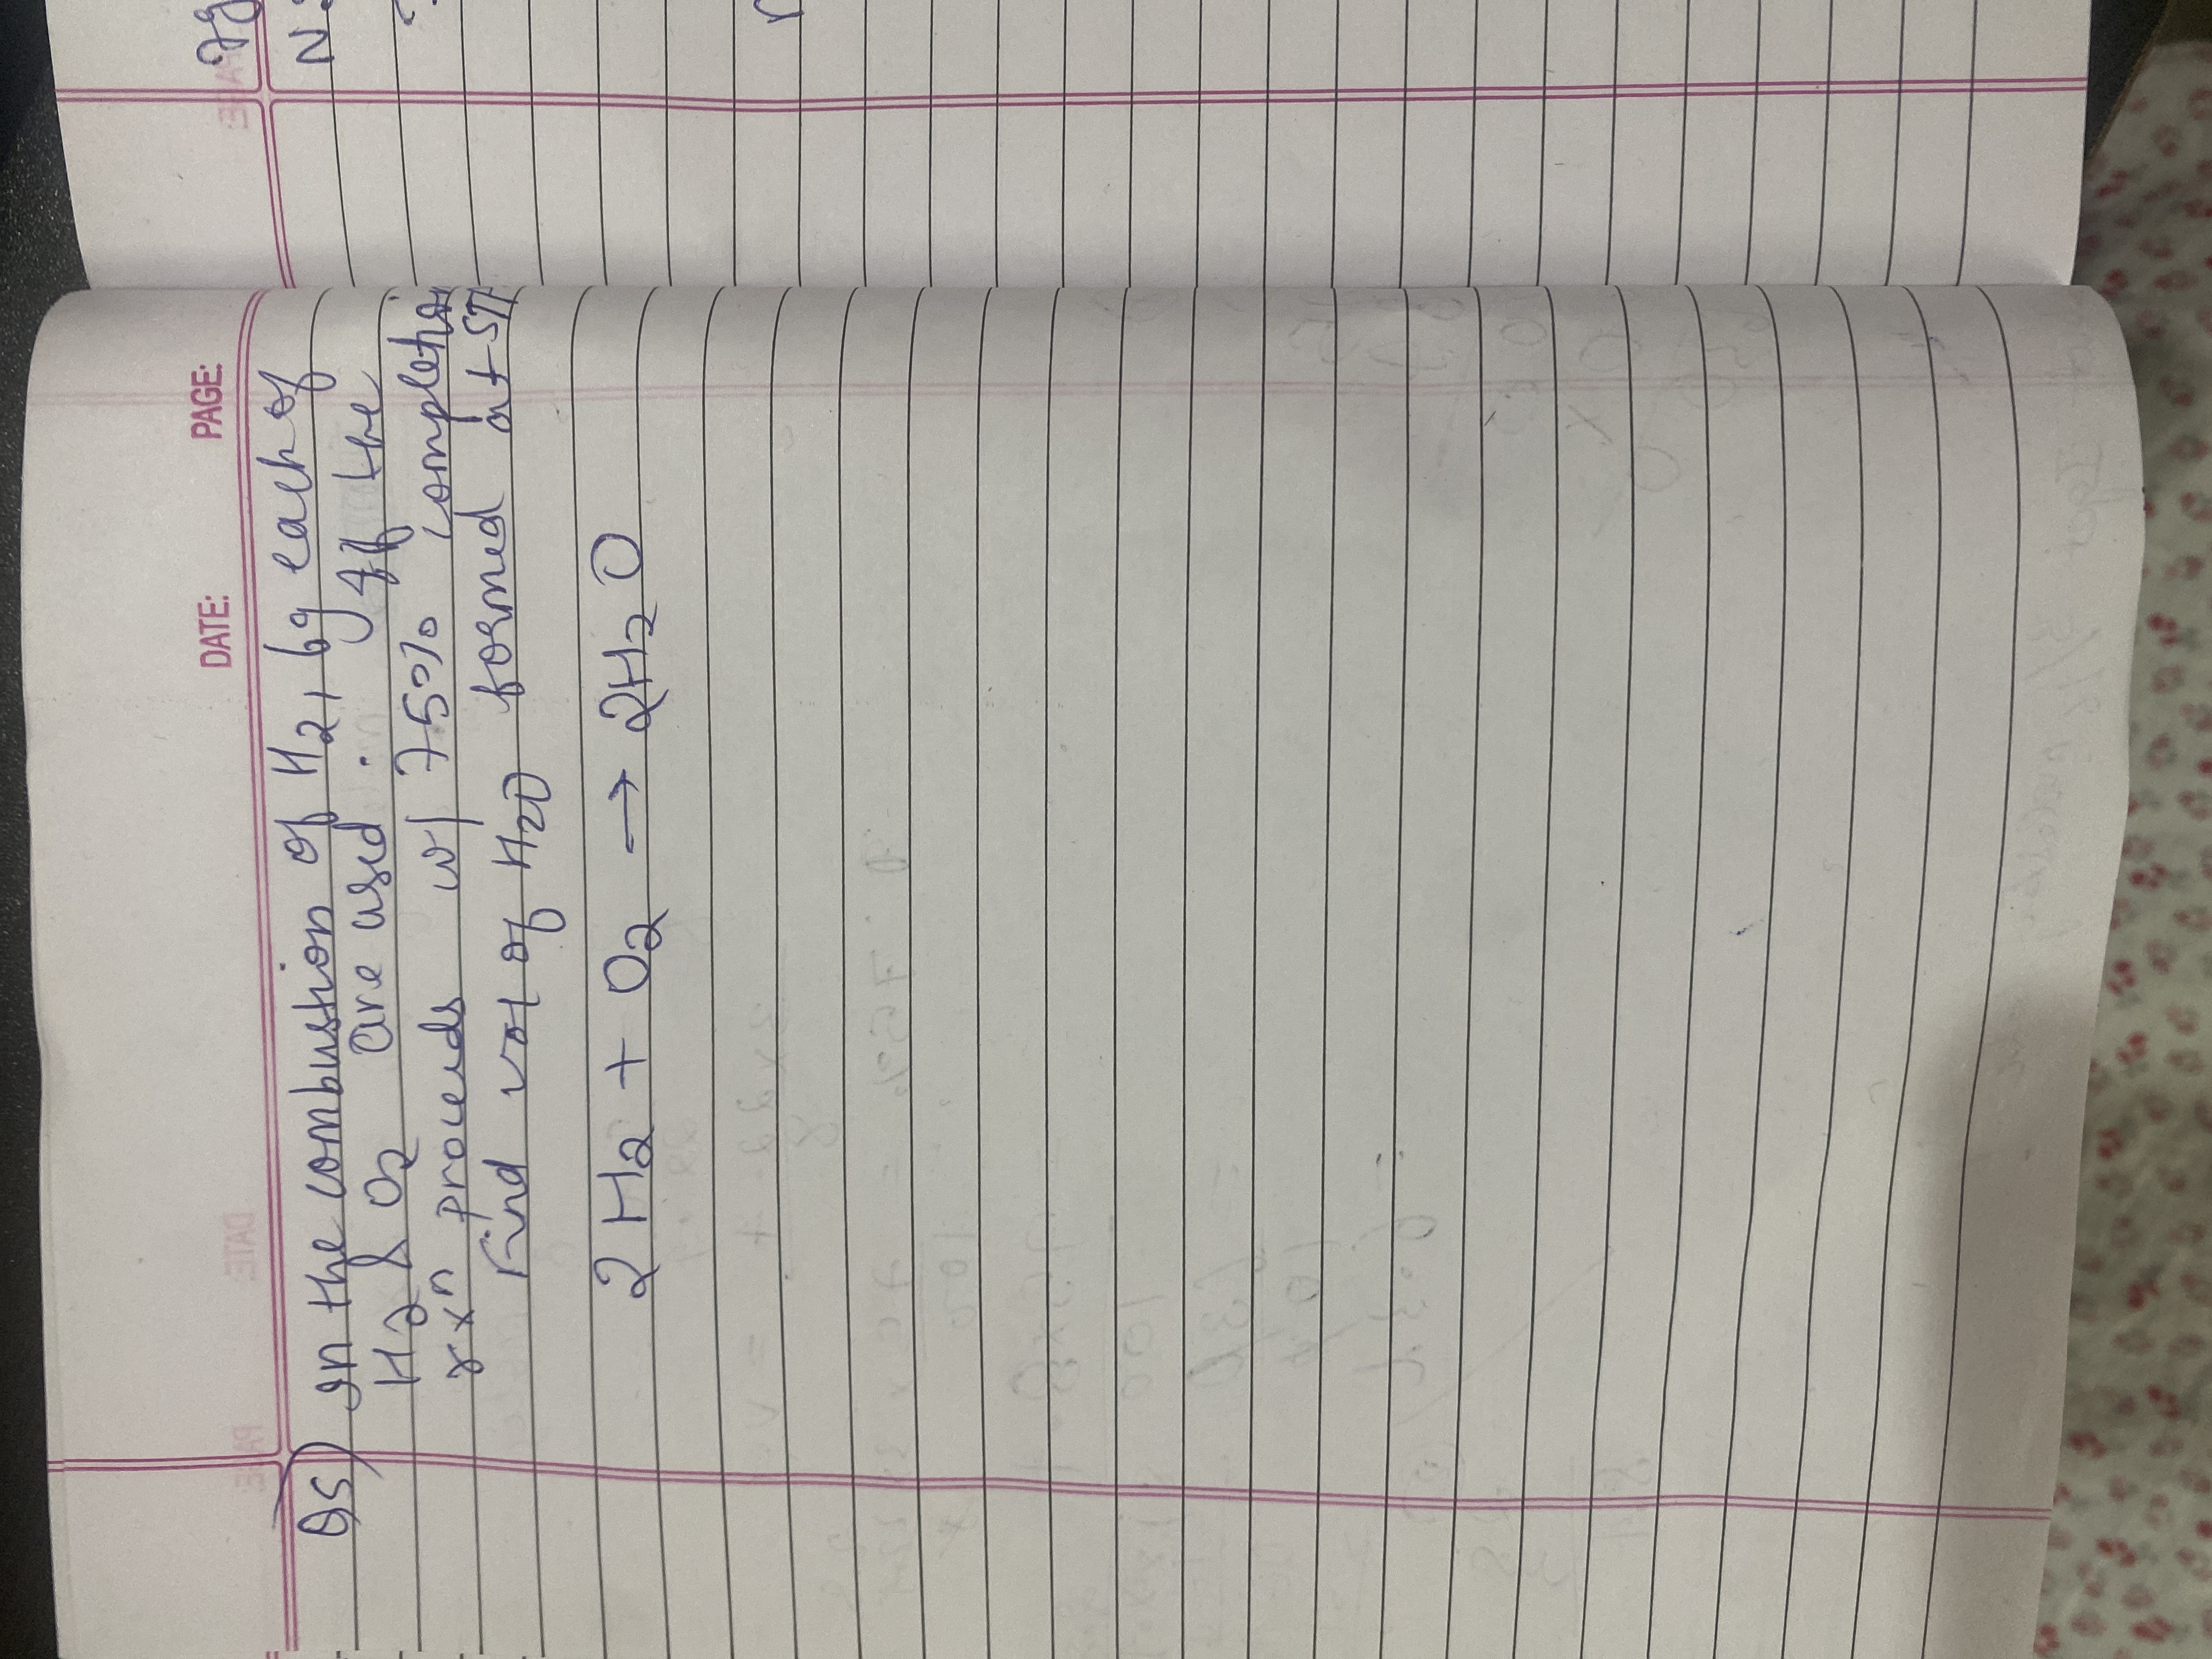 DATE: PAGE:
Q5) In the combustion of H2, 6g each of
H2 & O2 are used. If the
rxn proceeds w/ 75% completion
Find vol of H2O formed at ST
2H2 + O2 → 2H2O